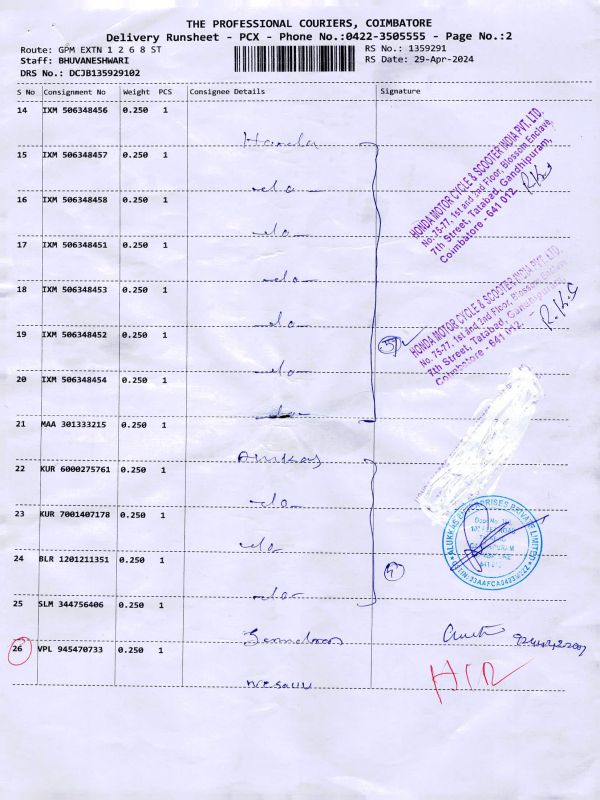 THE PROFESSIONAL COURIERS, COIMBATORE
Delivery Runsheet - PCX - Phone No.:0422-3505555 - Page No.:2
Route: GPM EXTN 1 2 6 8 ST RS No.: 1359291
Staff: BHUVANESHWARI RS Date: 29-Apr-2024
DRS No.: DCJB135929102
S No Consignment No Weight PCS Consignee Details Signature
14 IXM 506348456 0.250 1
Honda
15 IXM 506348457 0.250 1
-do-
16 IXM 506348458 0.250 1
-do-
17 IXM 506348451 0.250 1
-do-
18 IXM 506348453 0.250 1
-do-
19 IXM 506348452 0.250 1
-do-
20 IXM 506348454 0.250 1
-do-
21 MAA 301333215 0.250 1
22 KUR 6000275761 0.250 1
-do-
23 KUR 7001407178 0.250 1
-do-
24 BLR 1201211351 0.250 1
-do-
25 SLM 344756406 0.250 1
26 VPL 945470733 0.250 1
HONDA MOTOR CYCLE & SCOOTER INDIA PVT. LTD.
No. 75-77, 1st and 2nd Floor, Blossom Enclave,
7th Street, Tatabad, Gandhipuram,
Coimbatore - 641 012.
R.K.S
HONDA MOTOR CYCLE & SCOOTER INDIA PVT. LTD.
No. 75-77, 1st and 2nd Floor, Blossom Enclave,
7th Street, Tatabad, Gandhipuram,
Coimbatore - 641 012.
R.K.S
ALUKKAS ENTERPRISES PRIVATE LIMITED